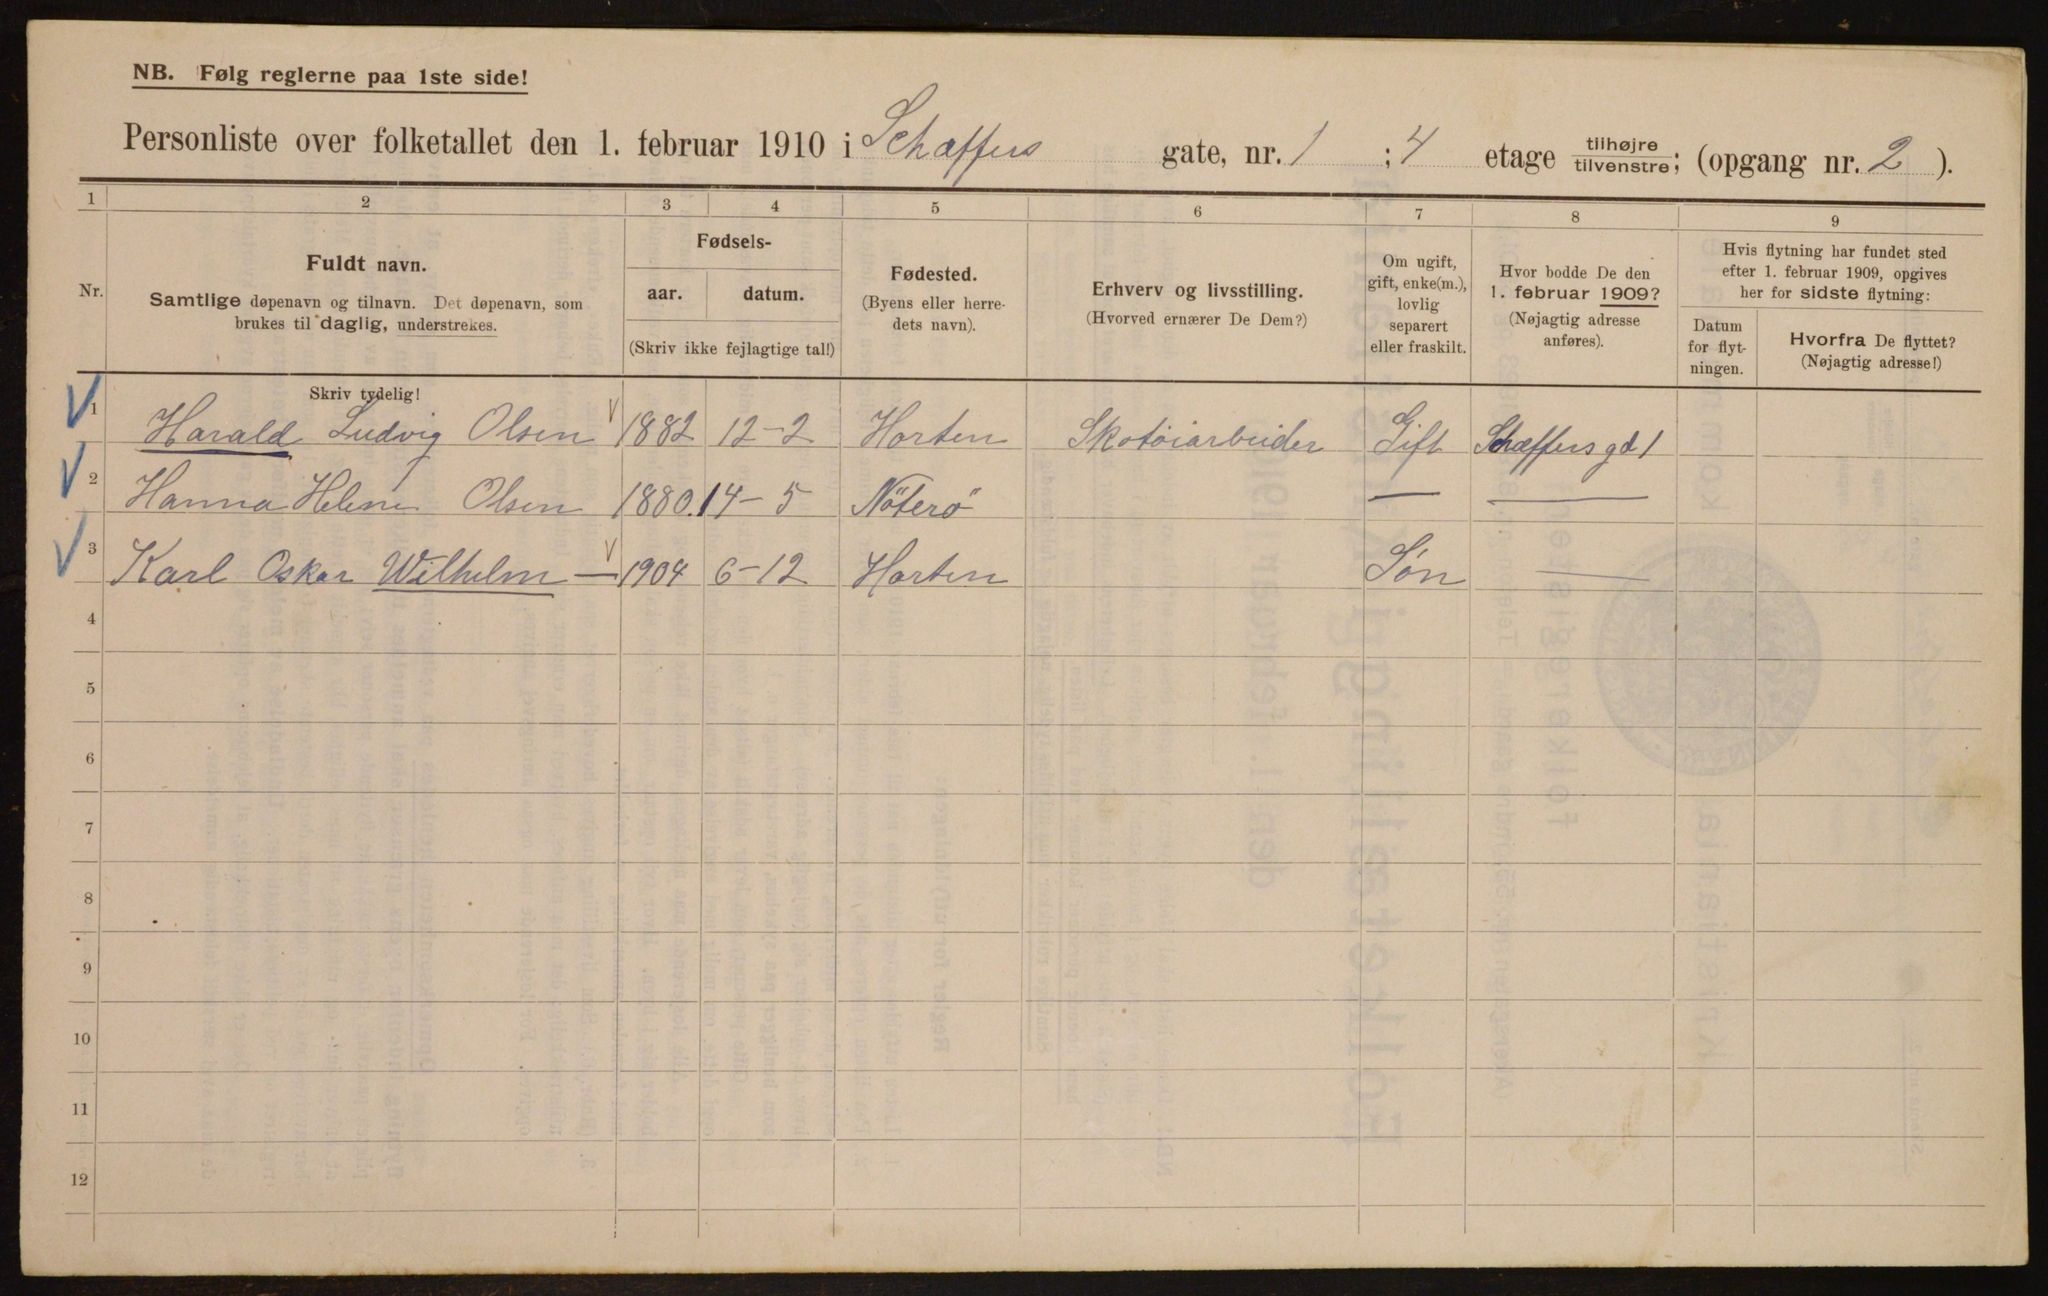 NB. Følg reglerne paa 1ste side!
Personliste over folketallet den 1. februar 1910 i Schæffers gate, nr. 1 ; 4 etage tilhøjre tilvenstre; (opgang nr. 2 ).
1 2 3 4 5 6 7 8 9
Nr.
Fuldt navn.
Samtlige døpenavn og tilnavn. Det døpenavn, som
brukes til daglig, understrekes.
Skriv tydelig!
Fødsels-
aar. datum.
(Skriv ikke fejlagtige tal!)
Fødested.
(Byens eller herre-
dets navn).
Erhverv og livsstilling.
(Hvorved ernærer De Dem?)
Om ugift,
gift, enke(m.),
lovlig
separert
eller fraskilt.
Hvor bodde De den
1. februar 1909?
(Nøjagtig adresse
anføres).
Hvis flytning har fundet sted
efter 1. februar 1909, opgives
her for sidste flytning:
Datum
for flyt-
ningen.
Hvorfra De flyttet?
(Nøjagtig adresse!)
1 Harald Ludvig Olsen 1882 12-2 Horten Skotöiarbeider Gift Schæffers gd 1
2 Hanna Helene Olsen 1880. 14-5 Nöterö — —
3 Karl Oskar Wilhelm — 1904 6-12 Horten Søn —
4
5
6
7
8
9
10
11
12